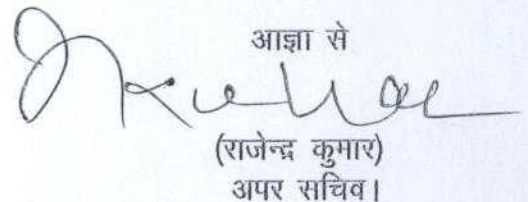 आज्ञा से
(राजेन्द्र कुमार)
अपर सचिव।